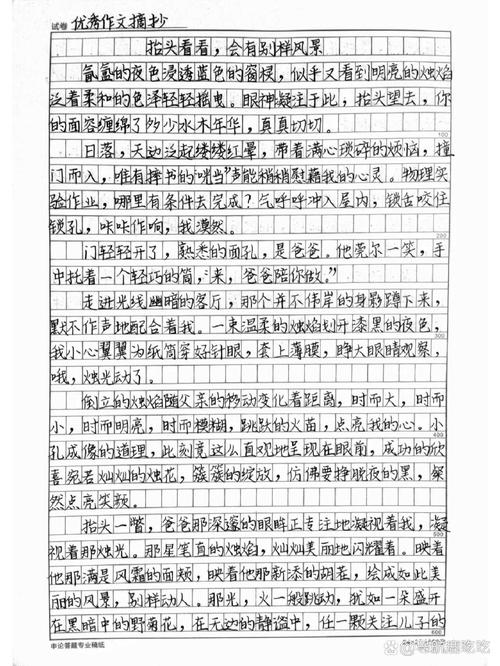 试卷 优秀作文摘抄
抬头看看，会有别样风景
氤氲的夜色浸透蓝色的窗棂，似乎又看到明亮的烛焰
泛着柔和的色泽轻轻摇曳。眼神凝注于此，抬头望去，你
的面容缠绵了多少水木年华，真真切切。
100
日落，天边泛起缕缕红晕，带着满心琐碎的烦恼，撞
门而入，唯有摔书的“咣当”声能稍稍慰藉我的心灵。物理实
验作业，哪里有条件去完成？气呼呼冲入屋内，锁舌咬住
锁孔，咔咔作响，我漠然。
200
门轻轻开了，熟悉的面孔，是爸爸。他莞尔一笑，手
中托着一个轻巧的筒，“来，爸爸陪你做。”
走进光线幽暗的客厅，那个并不伟岸的身影蹲下来，
默不作声地配合着我。一束温柔的烛焰划开漆黑的夜色，
300
我小心翼翼为纸筒穿好针眼，套上薄膜，睁大眼睛观察，
哦，烛光动了。
倒立的烛焰随父亲的移动变化着距离，时而大，时而
小，时而明亮，时而模糊，跳跃的火苗，点亮我的心。小
400
孔成像的道理，此刻竟这么直观地呈现在眼前，成功的欣
喜宛若灿灿的烛花，簇簇的绽放，仿佛要挣脱夜的黑，粲
然点亮笑颊。
抬头一瞥，爸爸那深邃的眼眸正专注地凝视着我，凝
500
视着那烛光。那星笔直的烛焰，灿灿美丽地闪耀着。映着
他那满是风霜的面颊，映着他那新添的胡茬，绘成如此美
丽的风景，别样动人。那光，火一般跳动，犹如一朵盛开
在黑暗中的野菊花，在无边的静谧中，任一颗关注儿子的
600
申论答题专业稿纸